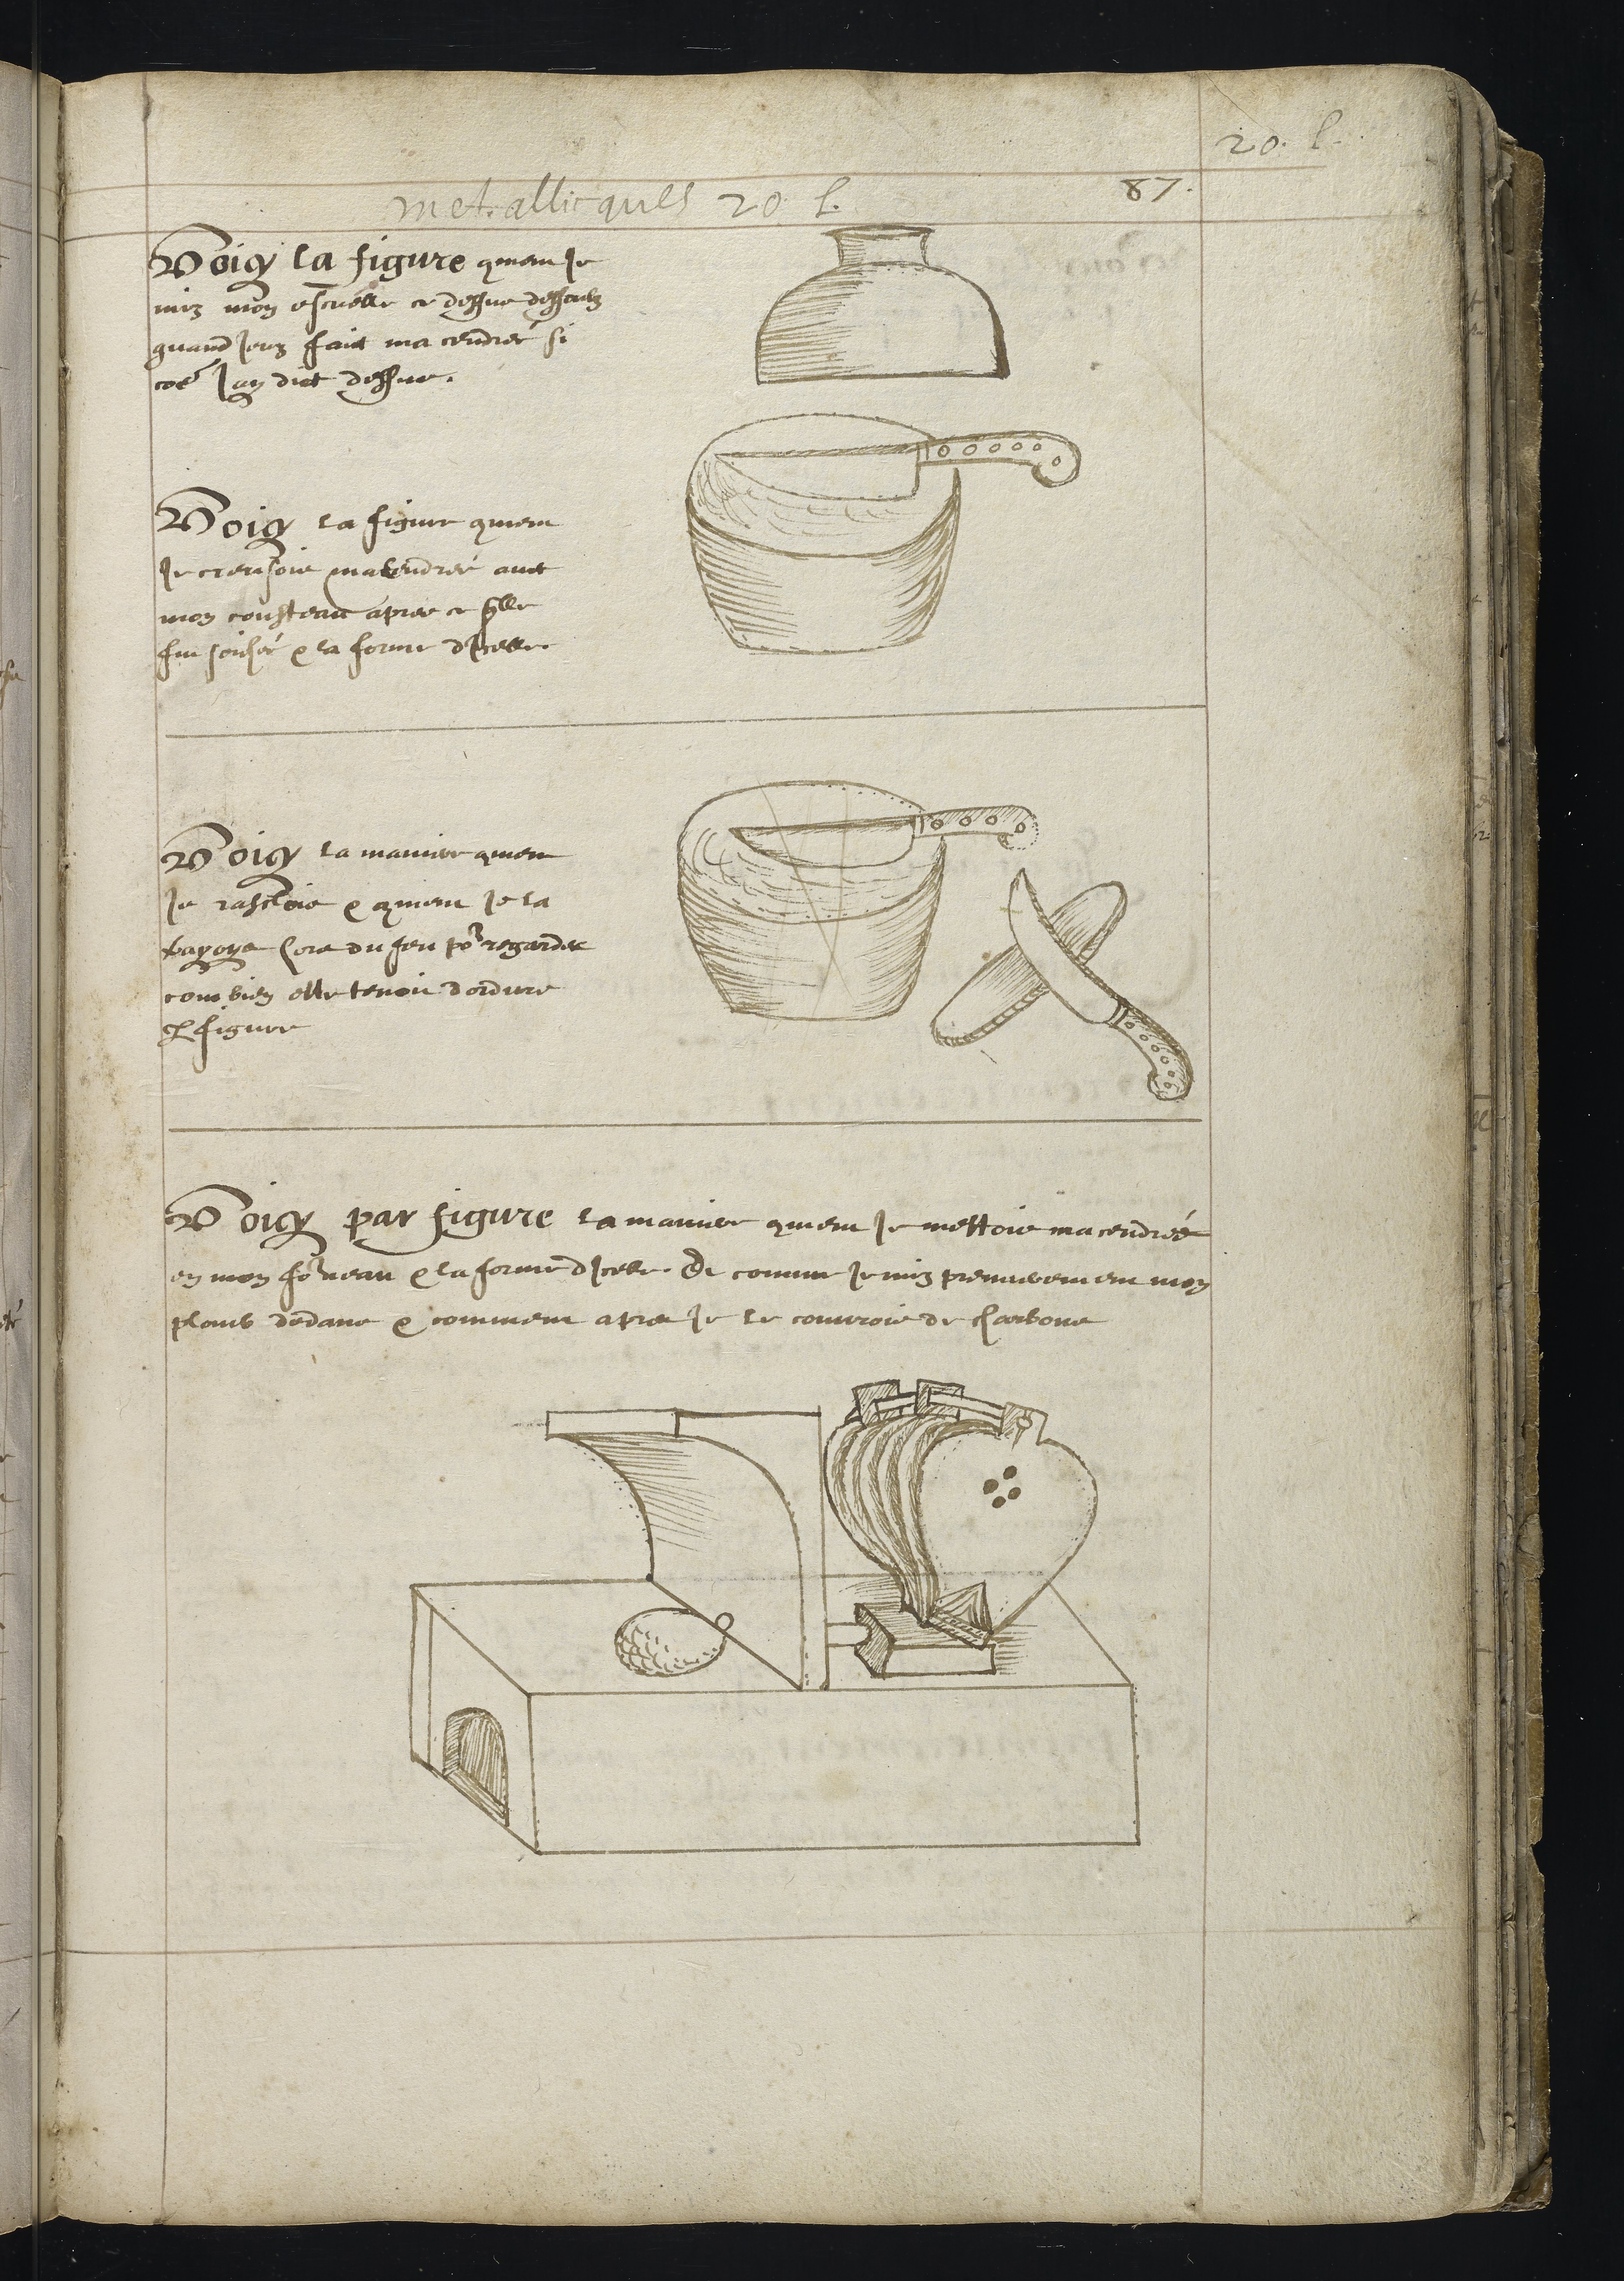 20. l.
metallicques 20 l. 87.
Voicy la figure qment Je
mis mon escuelle ce dessus dessoubz
quand Jeuz faict ma cendreé si
coe Jay dict dessus.
Voicy la figure qment
Je creusoie ma cendreé avec
mon cousteau apres ce qlle
fut & la forme dIcelle.
Voicy la maniere qment
Je rascloie & qment Je la
hors du feu por regarder
combien elle tenoit dordure
figure
Voicy par figure la maniere qment Je mettoie ma cendreé
en mon forneau & la forme dIcelle. Et comme Je mis premierement mon
plomb dedans & comment apres Je le couvroie de charbons